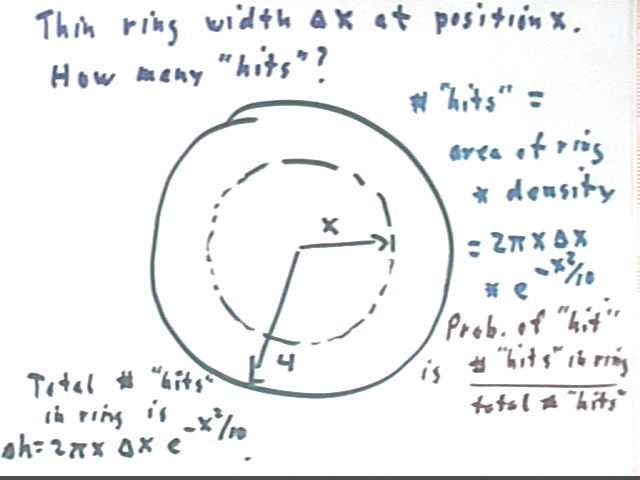 Thin ring width Δx at position x.
How many "hits"?
# "hits" =
area of ring
* density
= 2πx Δx
* e^-x²/10
x
4
Prob. of "hit"
is # "hits" in ring
total # "hits"
Total # "hits"
in ring is
Δh = 2πx Δx e^-x²/10.